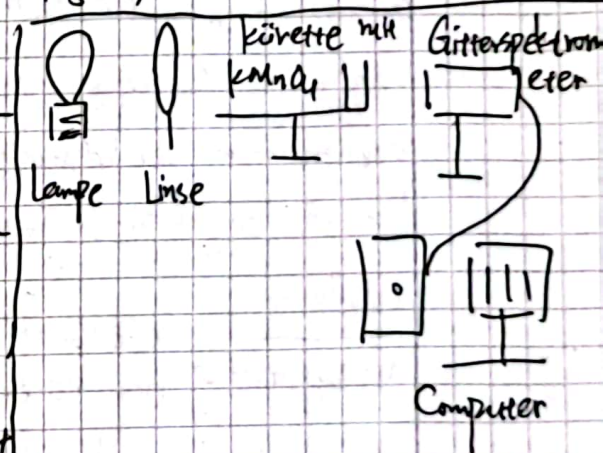 Küvette mit
KMnO4
Gitterspektrom
eter
Lampe
Linse
Computer